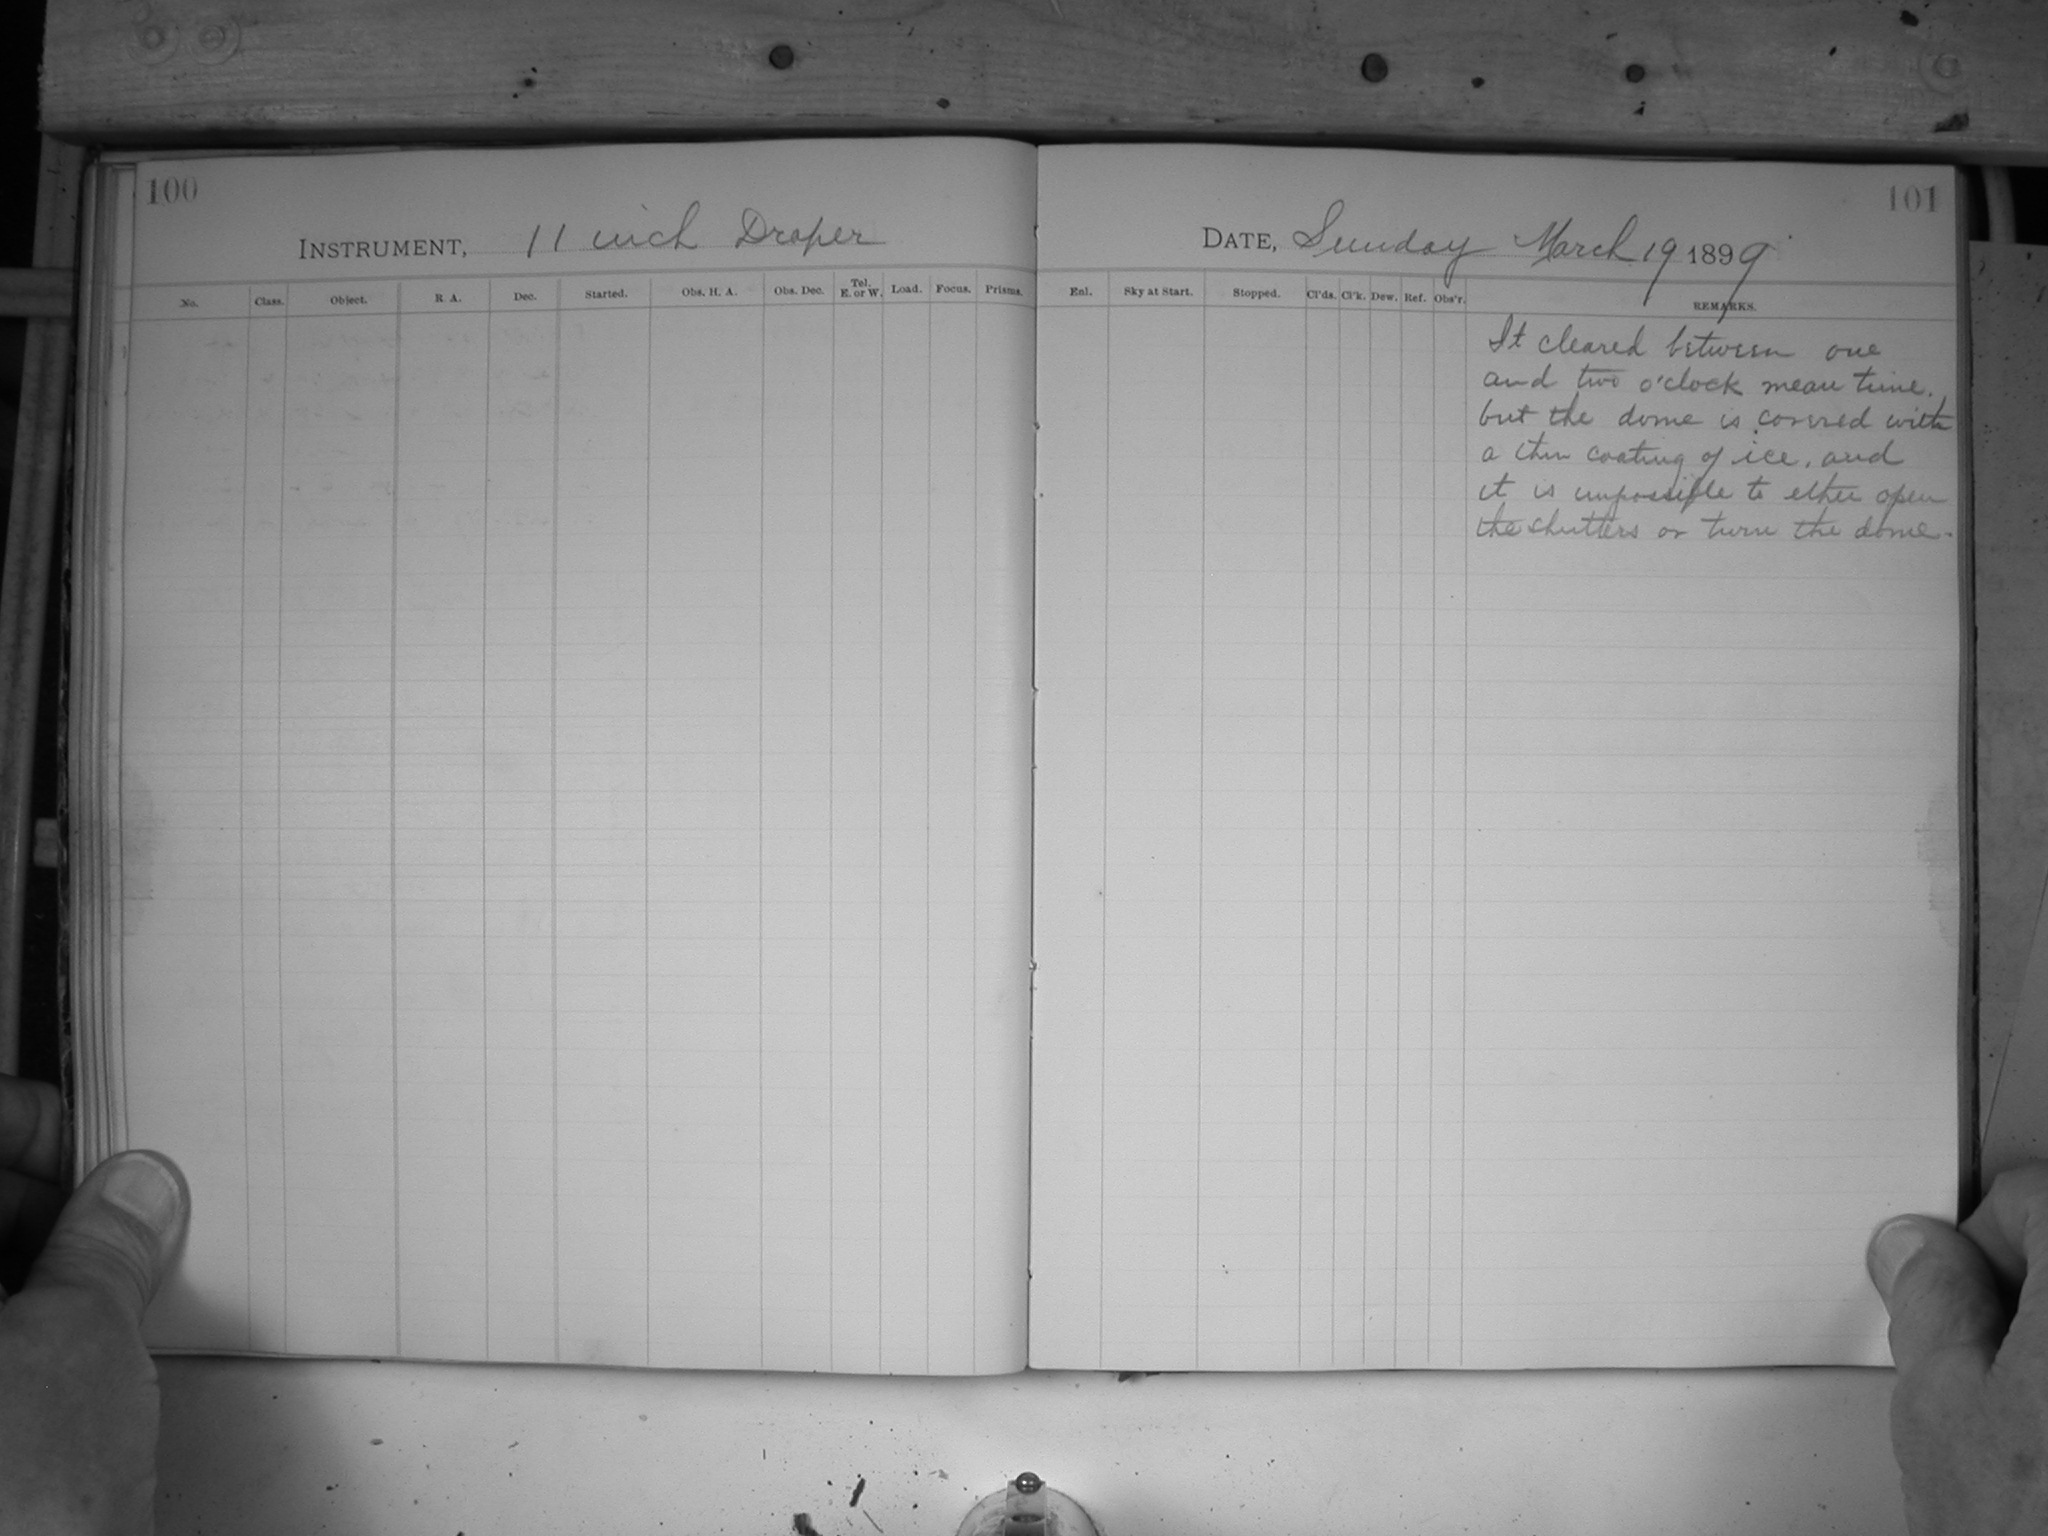 100
INSTRUMENT, 11 inch Draper
No. Class. Object. R. A. Dec. Started. Obs. H. A. Obs. Dec. Tel. E. or W. Load. Focus. Prisms.
101
DATE, Sunday March 19 1899
Enl. Sky at Start. Stopped. Cl'ds. Cl'k. Dew. Ref. Obs'r. REMARKS.
It cleared between one
and two o'clock mean time.
but the dome is covered with
a thin coating of ice, and
it is impossible to either open
the shutters or turn the dome.